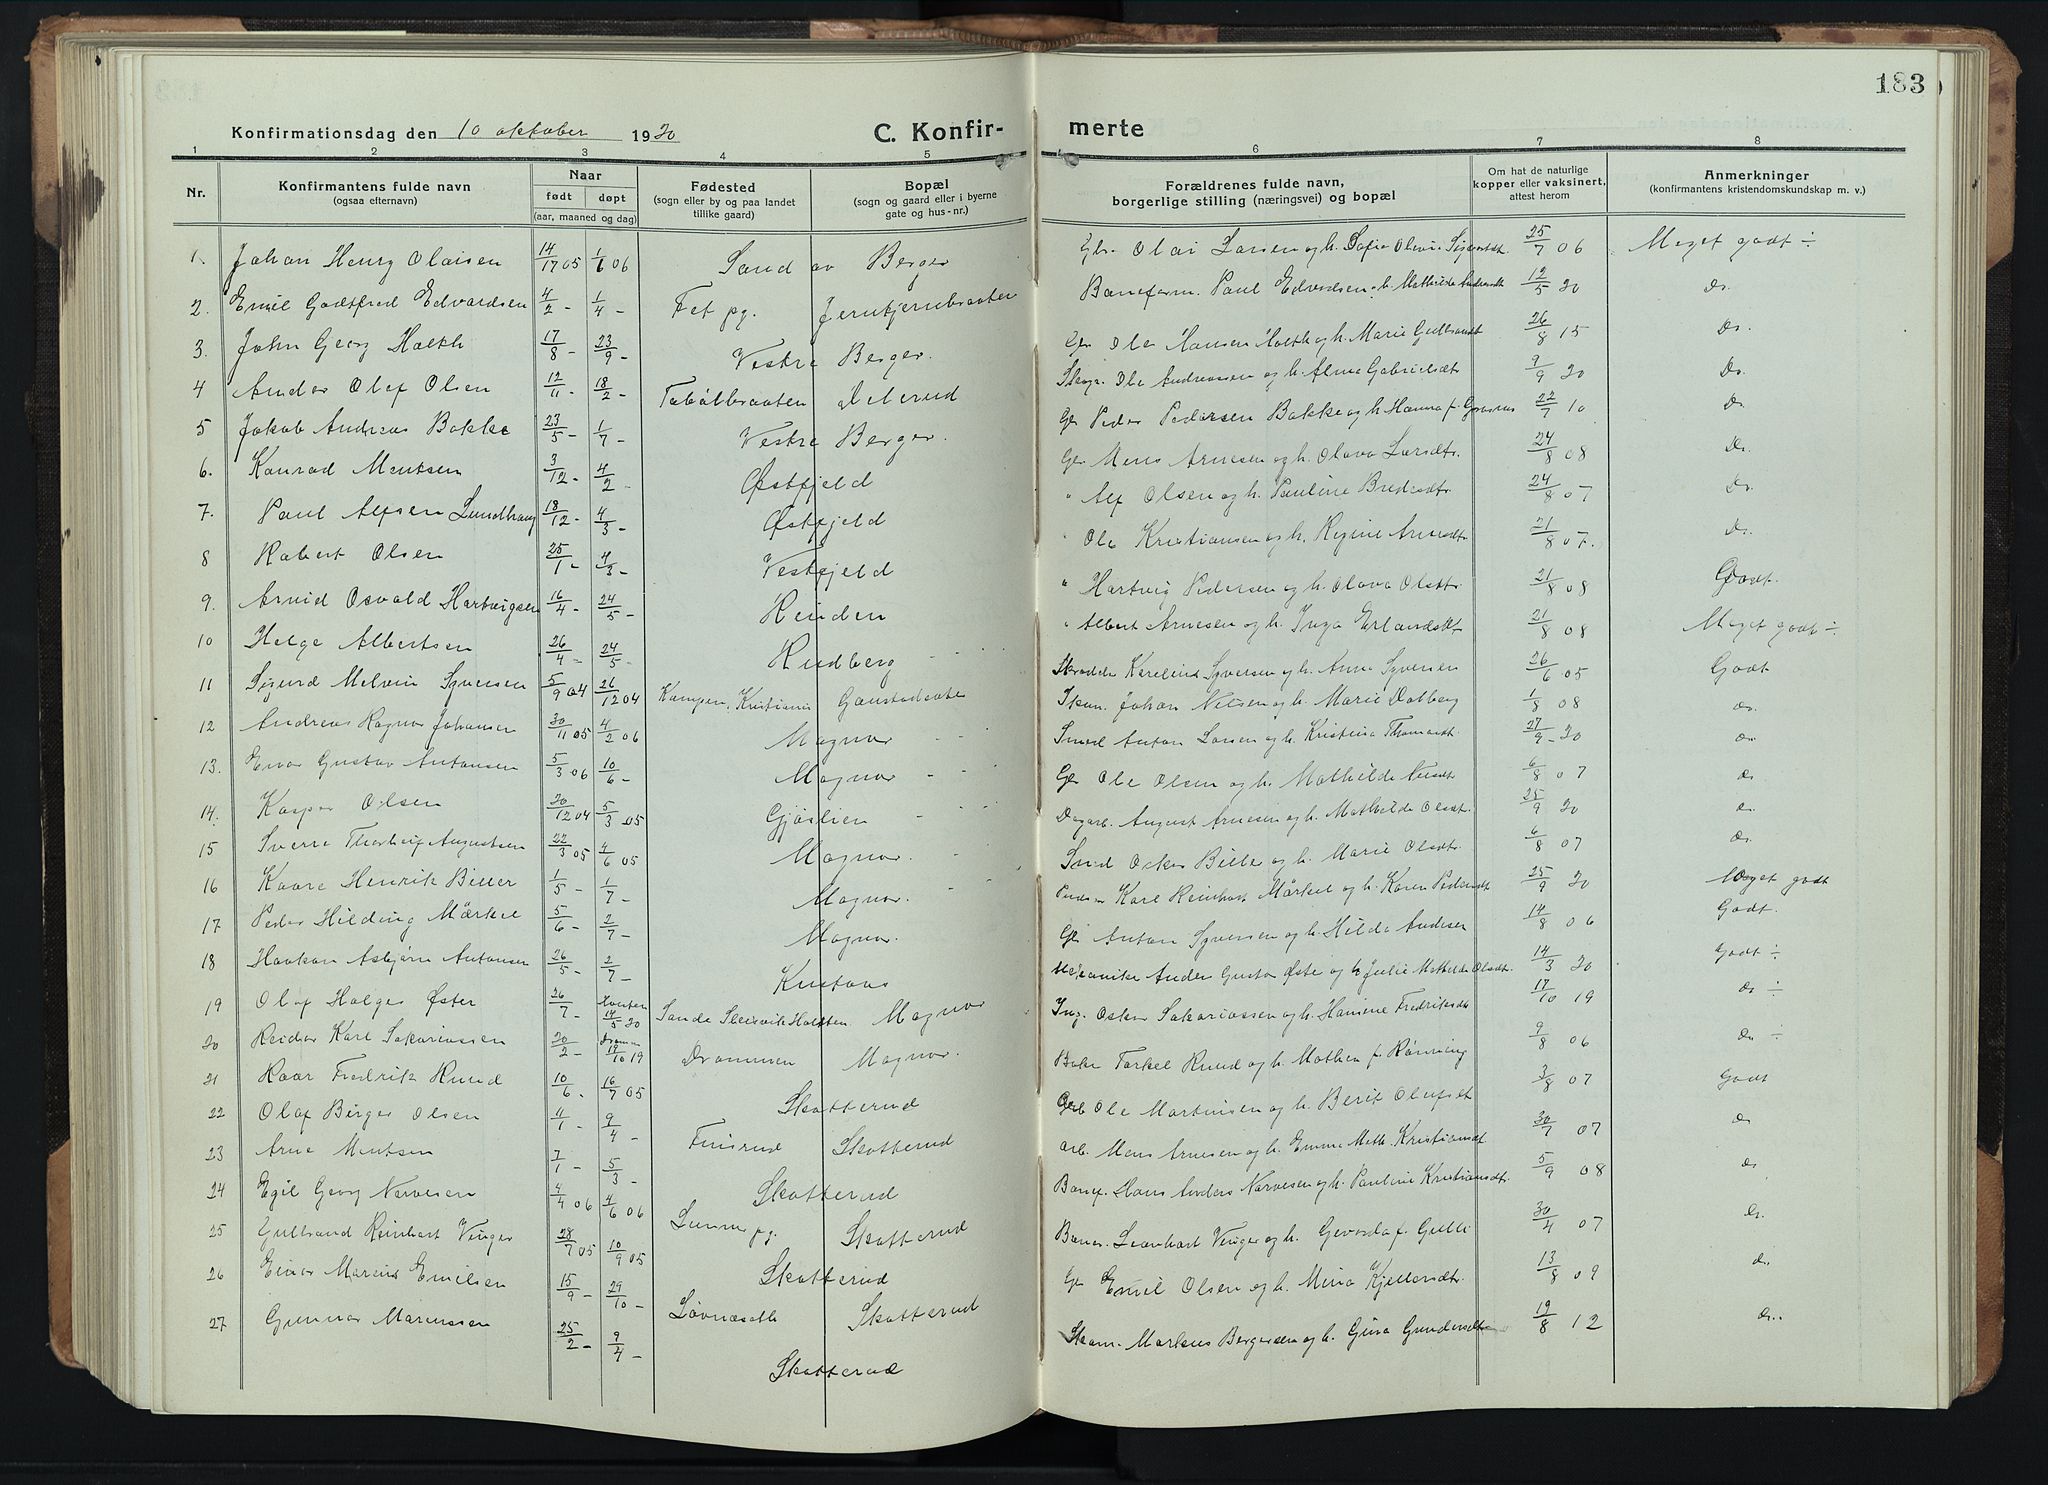 183
Konfirmationsdag den 10 oktober 1920 C. Konfirmerte
1 2 3 4 5 6 7 8
Nr. Konfirmantens fulde navn (ogsaa efternavn) Naar født døpt (aar, maaned og dag) Fødested (sogn eller by og paa landet tillike gaard) Bopæl (sogn og gaard eller i byerne gate og hus-nr.) Forældrenes fulde navn, borgerlige stilling (næringsvei) og bopæl Om hat de naturlige kopper eller vaksinert, attest herom Anmerkninger (konfirmantens kristendomskundskap m. v.)
1. Johan Henry Olaisen 14/17 05 1/6 06 Sand av Berger Gbr. Olai Larsen og h. Sofie Olivie 25/7 06 Meget godt ÷
2. Emil Godtfred Edvardsen 4/2 - 1/4 - Fet pg. Jerntjernbraaten Baneform. Paul Edvardsen og h. Mathilde 12/5 20 Do.
3. John Georg Holth 17/8 - 23/9 - Vestre Berger. Gbr Ole Hansen Holth og h. Marie Gulbrandsdt 26/8 15 Do.
4 Ander Olaf Olsen 12/11 - 18/2 - Tabølbraaten Deterud Skogr. Ole Andreassen og h. Alma Gabrielsdt 9/9 20 Do.
5 Jakob Andreas Bakke 23/5 - 1/7 - Vestre Berger. Gbr Peder Pedersen Bakke og h. Hanna f. 22/7 10 Do.
6. Konrad Mentsen 3/12 - 4/2 - Østfjeld Gbr Mens Arnesen og h. Olava Larsdtr. 24/8 08 Do.
7. Paul Alfsen Lundhaug 18/12 - 4/3 - Østfjeld " Alf Olsen og h. Pauline Bredesdtr 24/8 07 Do.
8 Robert Olsen 25/1 - 4/3 - Vestfjeld " Ole Kristiansen og h. Regine Arnesdtr 21/8 07. Do.
9. Arvid Osvald Hartvigsen 16/4 - 24/5 - Kinden " Hartvig Pedersen og h. Olava Olsdtr 21/8 08 Godt.
10 Helge Albertsen 26/4 - 24/5 - Rudberg " Albert Arnesen og h. Inga Erlandsdt 21/8 08 Meget godt ÷
11 Sigurd Melvin Syversen 5/9 04 26/12 04 Kampen, Kristiania Gaustadsæte Skrædder Karelius Syversen og h. Anna Syversen 26/6 05 Godt
12 Andreas Ragnar Johansen 30/11 05 4/2 06 Magnor Skom. Johan Nilsen og h. Marie Dalberg 1/8 08 do.
13. Einar Gustav Antonsen 5/3 06 10/6 - Magnor Smed Anton Larsen og h. Kristina Thomasdt. 27/9 - 20 do
14. Kaspar Olsen 20/12 04 5/3 05 Gjøslien Gbr Ole Olsen og h. Mathilde Nilsdt 6/8 07 do
15 Sverre Thorleif Augustsen 22/3 05 4/6 05 Magnor. Dagarb. August Arnesen og h. Mathilde Olsdt. 25/9 20 do.
16 Kaare Henrik Biller 1/5 - 1/7 - Magnor. Smed Oskar Biller og h. Marie Olsdtr. 6/8 07 do.
17 Peder Hilding Mørkel 5/6 - 2/7 - Magnor. Karl Reinhart Mørkel og h. Karen Pedersdt 25/9 20 Meget godt
18 Haakon Asbjørn Antonsen 26/5 - 2/7 - Kustaas Gbr Anton Syversen og h. Hilda Andersen 14/8 06 Godt.
19 Olaf Holger Øster 26/7 - 14/5 20 Sande Magnor Mekanike Ander Gustav Øste og h. Julie Mathilde Olsdt. 14/3 20 Godt ÷
20 Reidar Karl Sakariassen 20/2 - Drammen 19/10 19 Drammen Magnor. Ing. Oskar Sakariassen og h. Hansine Fredriksdt 17/10 19 do ÷
21 Roar Fredrik Ruud 10/6. 16/7 05 Skotterud Baker Torkel Ruud og h. Mathea f. Rønning 9/8 06 do ÷
22 Olaf Birger Olsen 4/1 - 9/4 - Finsrud Skotterud Gbr Ole Martinsen og h. Berit Olufsdt 3/8 07 Godt
23 Arne Mentsen 7/1 - 5/3 - Skotterud Arb. Mens Arnesen og h. Emma Math. Kristiansdt. 30/7 07 do
24 Egil Georg Narvesen 4/4 06 4/6 06 Lunner pg. Skotterud Banef. Hans Anders Narvesen og h. Pauline Kristiansdt. 5/9 08 do
25 Gulbrand Reinhart Vinger 28/7 05 10/9 05 Skotterud Leonhart Vinger og h. Gevarda f. Gulli 30/4 07 do.
26 Einar Marius Emilsen 15/9 - 29/10 - Løvnæseth Skotterud Gbr Emil Olsen og h. Mina Kjellersdtr. 13/8 09 do.
27 Gunnar Mariussen 25/2 - 9/4 - Skotterud Skom. Markus Bergersen og h. Gina Gundersdtr 19/8 12 do.